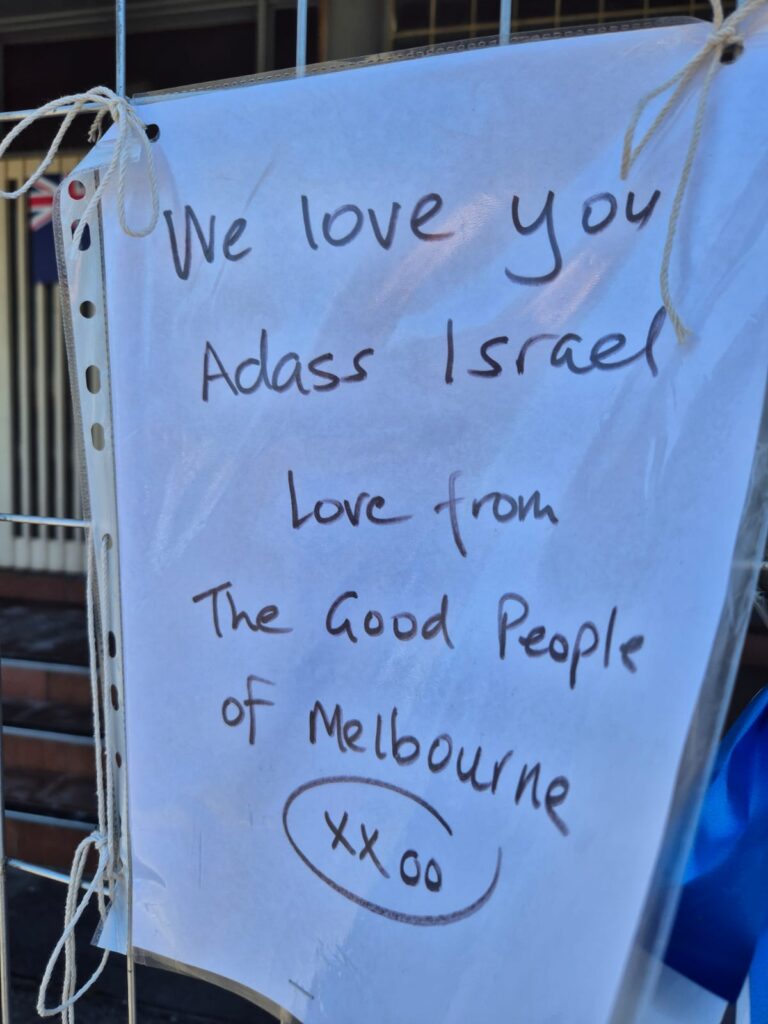 We love you
Adass Israel
Love from
The Good People
of Melbourne
xx oo